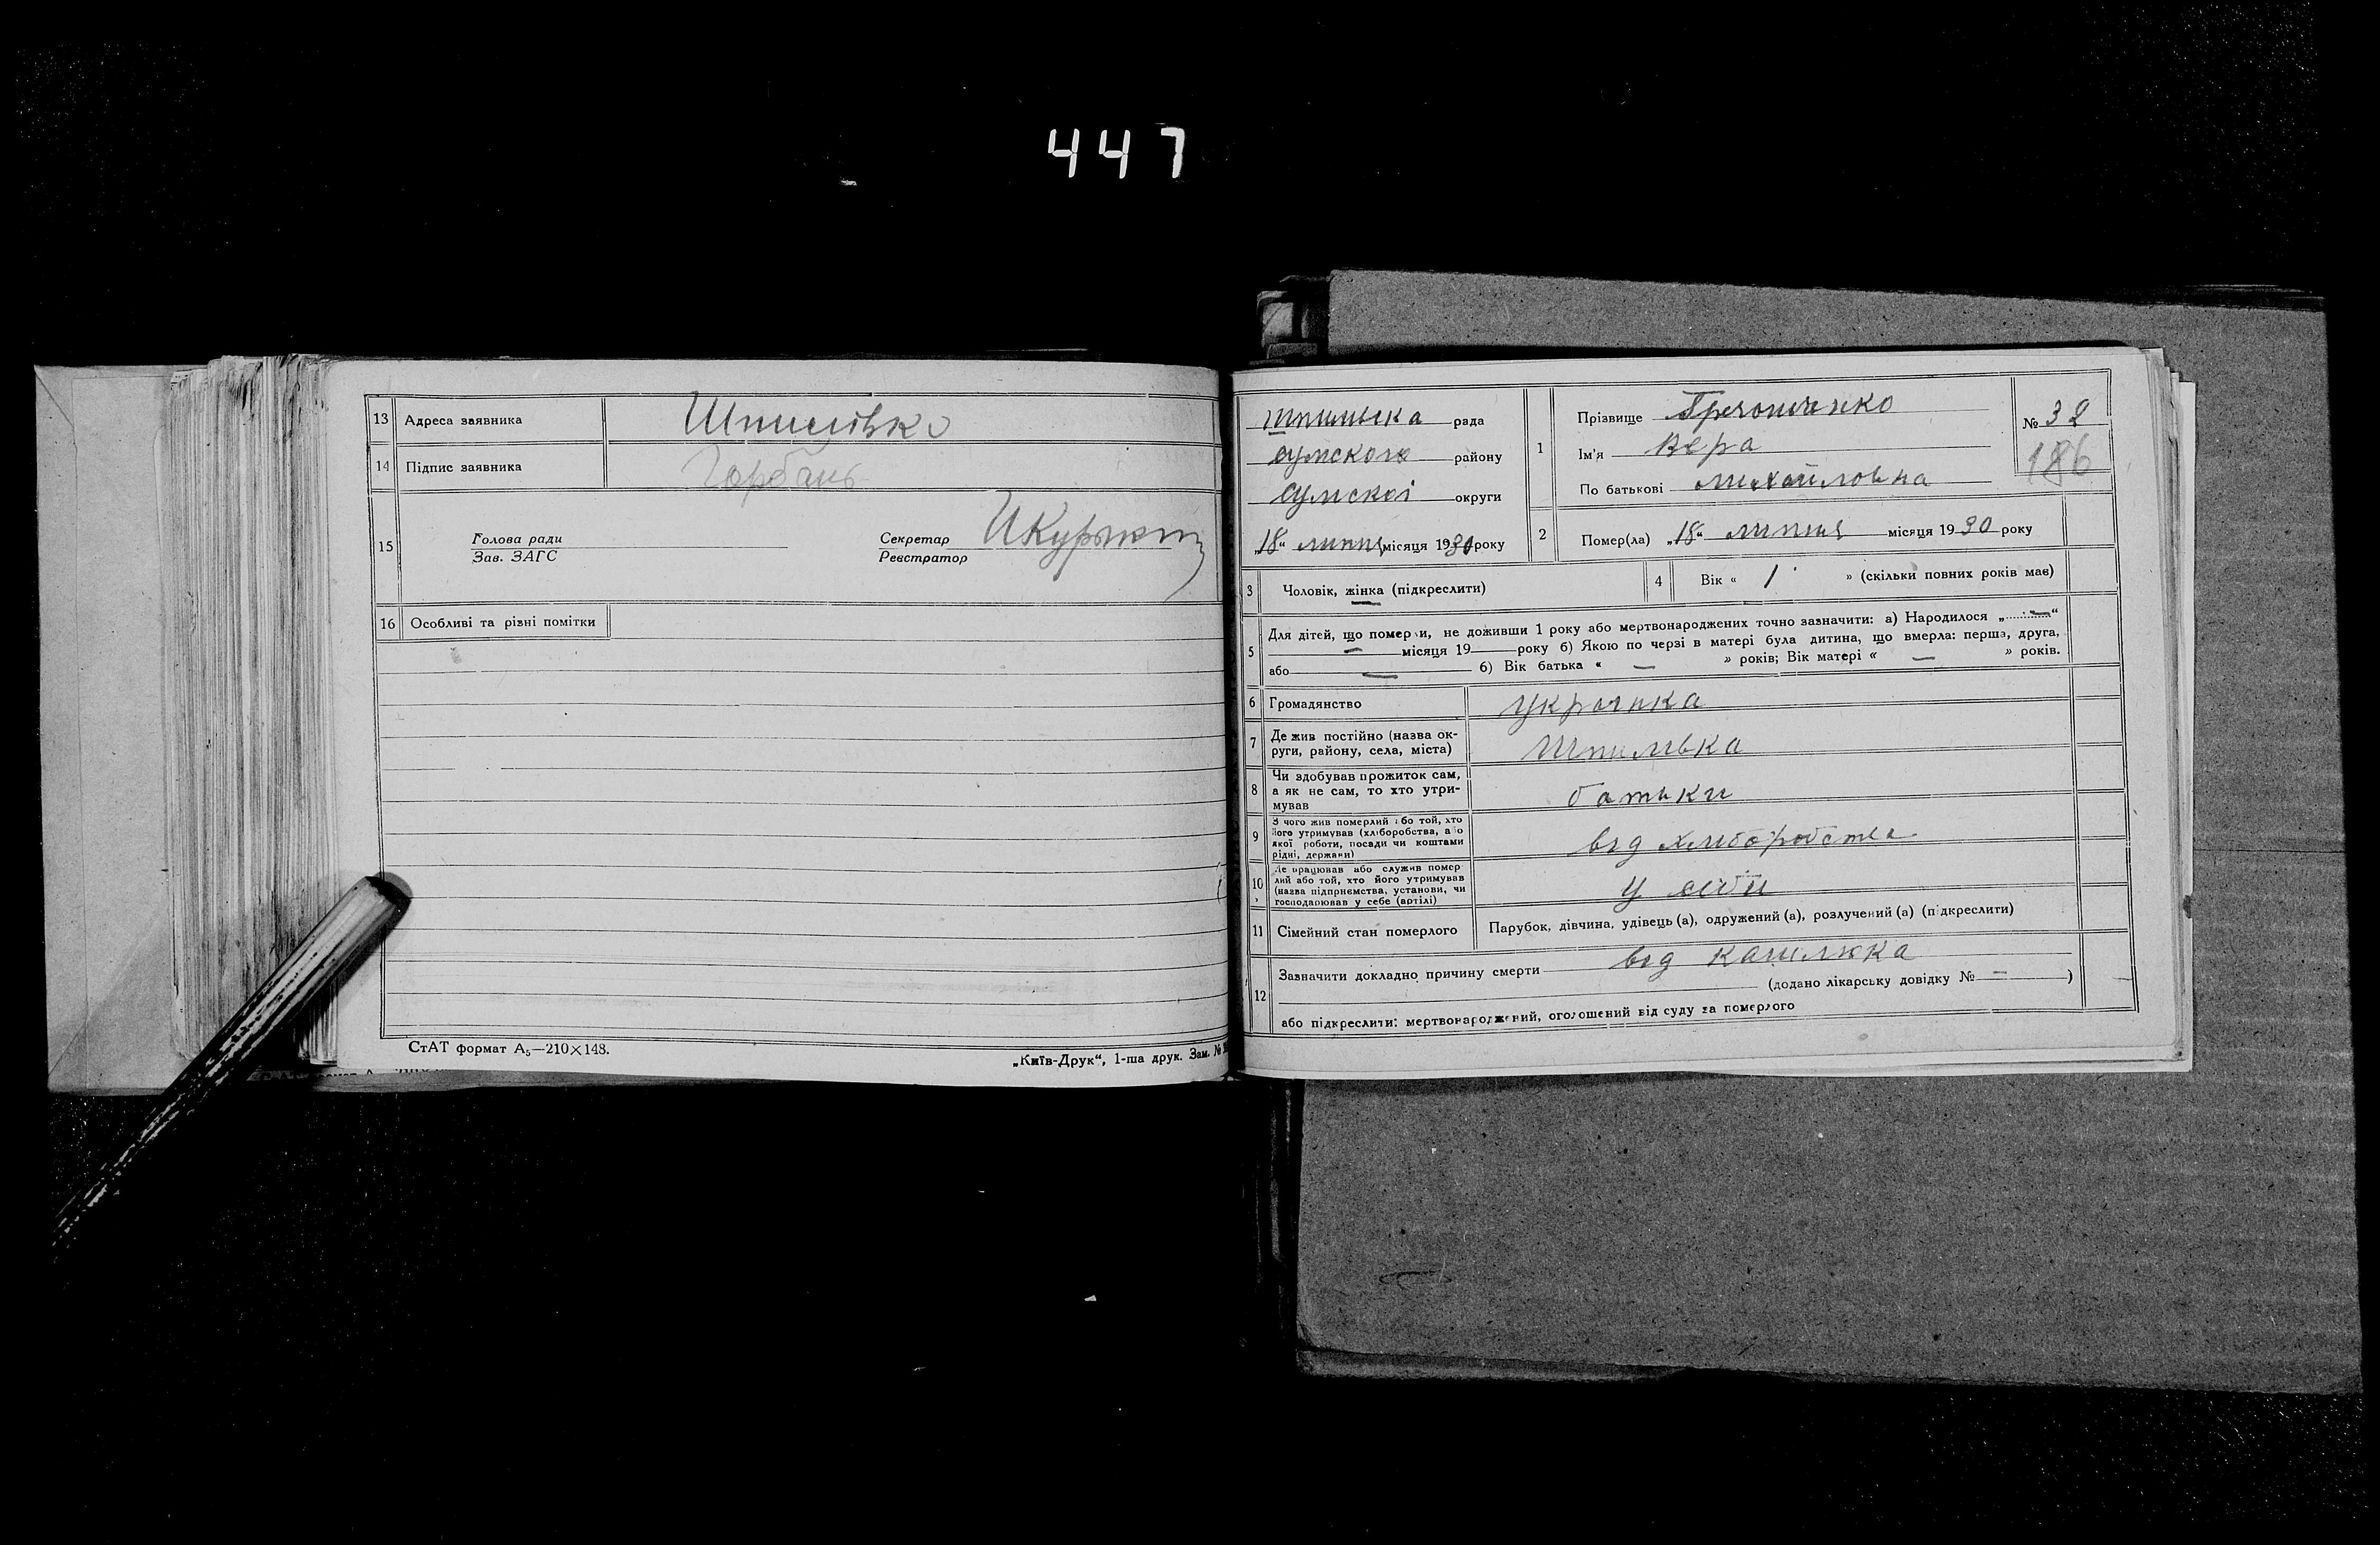 447
13 Адреса заявника Шпилівка
14 Підпис заявника Горбань
15 Голова ради
Зав. ЗАГС
Секретар
Реєстратор
16 Особливі та різні помітки
СтАТ формат А5—210×148.
„Київ-Друк“, 1-ша друк. Зам. №
рада
Сумского району
Сумскої округи
„18“ липня місяця 1930 року
1 Прізвище
Ім'я Вера
По батькові Михайловна
№ 32
186
2 Помер(ла) „18“ липня місяця 1930 року
3 Чоловік, жінка (підкреслити)
4 Вік « 1 » (скільки повних років має)
5 Для дітей, що померли, не доживши 1 року або мертвонароджених точно зазначити: а) Народилося „ — “
— місяця 19 року б) Якою по черзі в матері була дитина, що вмерла: перша, друга,
або — б) Вік батька « — » років; Вік матері « — » років.
6 Громадянство украінка
7 Де жив постійно (назва ок-
руги, району, села, міста) Шпилівка
8 Чи здобував прожиток сам,
а як не сам, то хто утри-
мував батьки
9 З чого жив померлий або той, хто
його утримував (хліборобства, або
якої роботи, посади чи коштами
рідні, держави) від хліборобства
10 Де працював або служив помер
лий або той, хто його утримував
(назва підприємства, установи, чи
господарював у себе (артілі) у себи
11 Сімейний стан померлого Парубок, дівчина, удівець (а), одружений (а), розлучений (а) (підкреслити)
12 Зазначити докладно причину смерти від кашлюка
(додано лікарську довідку № — )
або підкреслити: мертвонароджений, оголошений від суду за померлого